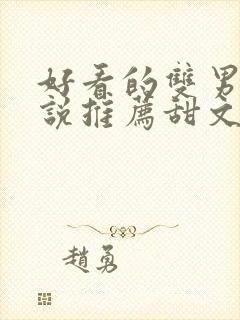 好看的雙男
說推薦甜文
趙勇